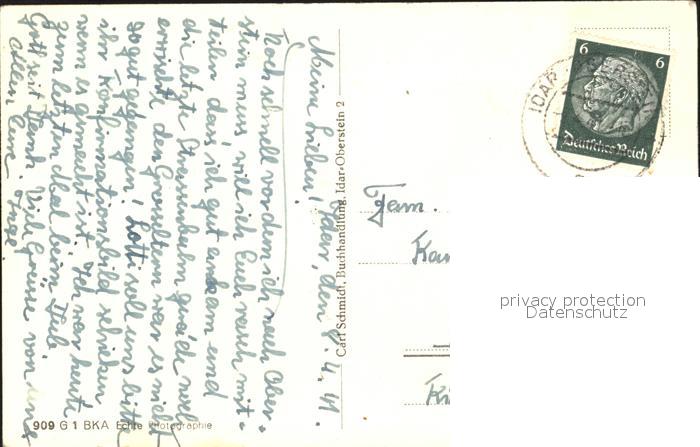 Idar, den 8. 4. 41.
Meine Lieben!
Noch schnell vordem ich nach Ober-
stein muss, will ich Euch rasch mit-
teilen dass ich gut ankam und
die letzte Strassenbahn grad noch
erwischte den Grosseltern war es nicht
so gut gegangen! Lotti soll uns bitte
ihr Konfirmationsbild schicken
wenn es gemacht ist. Ich war heute
zum letzten Mal beim
Gott sei Dank. Viele Grüsse von uns
allen Eure Inge
Carl Schmidt, Buchhandlung, Idar-Oberstein 2
909 G 1 BKA Echte Photographie
6 6
Deutsches Reich
IDAR
Fam.
privacy protection
Datenschutz